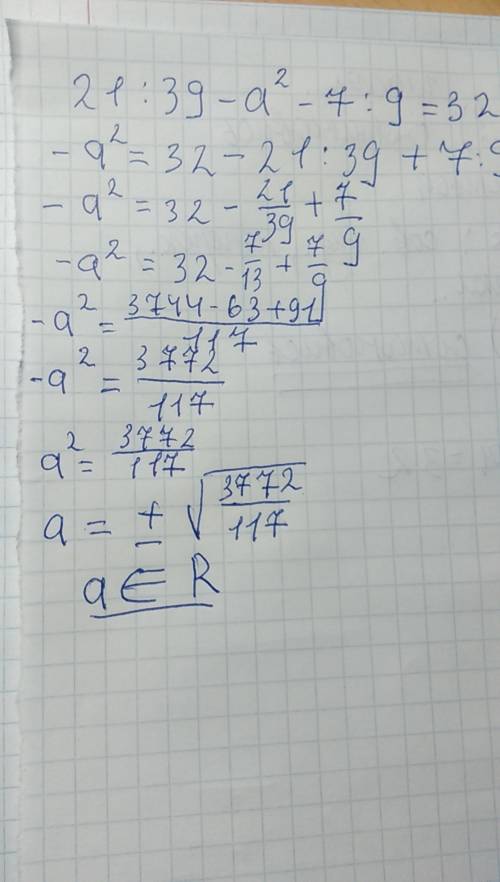 21 : 39 - a² - 7 : 9 = 32
-a² = 32 - 21 : 39 + 7 : 9
-a² = 32 - 21/39 + 7/9
-a² = 32 - 7/13 + 7/9
-a² = 3744 - 63 + 91/117
-a² = 3772/117
a² = 3772/117
a = ± √3772/117
a ∈ R